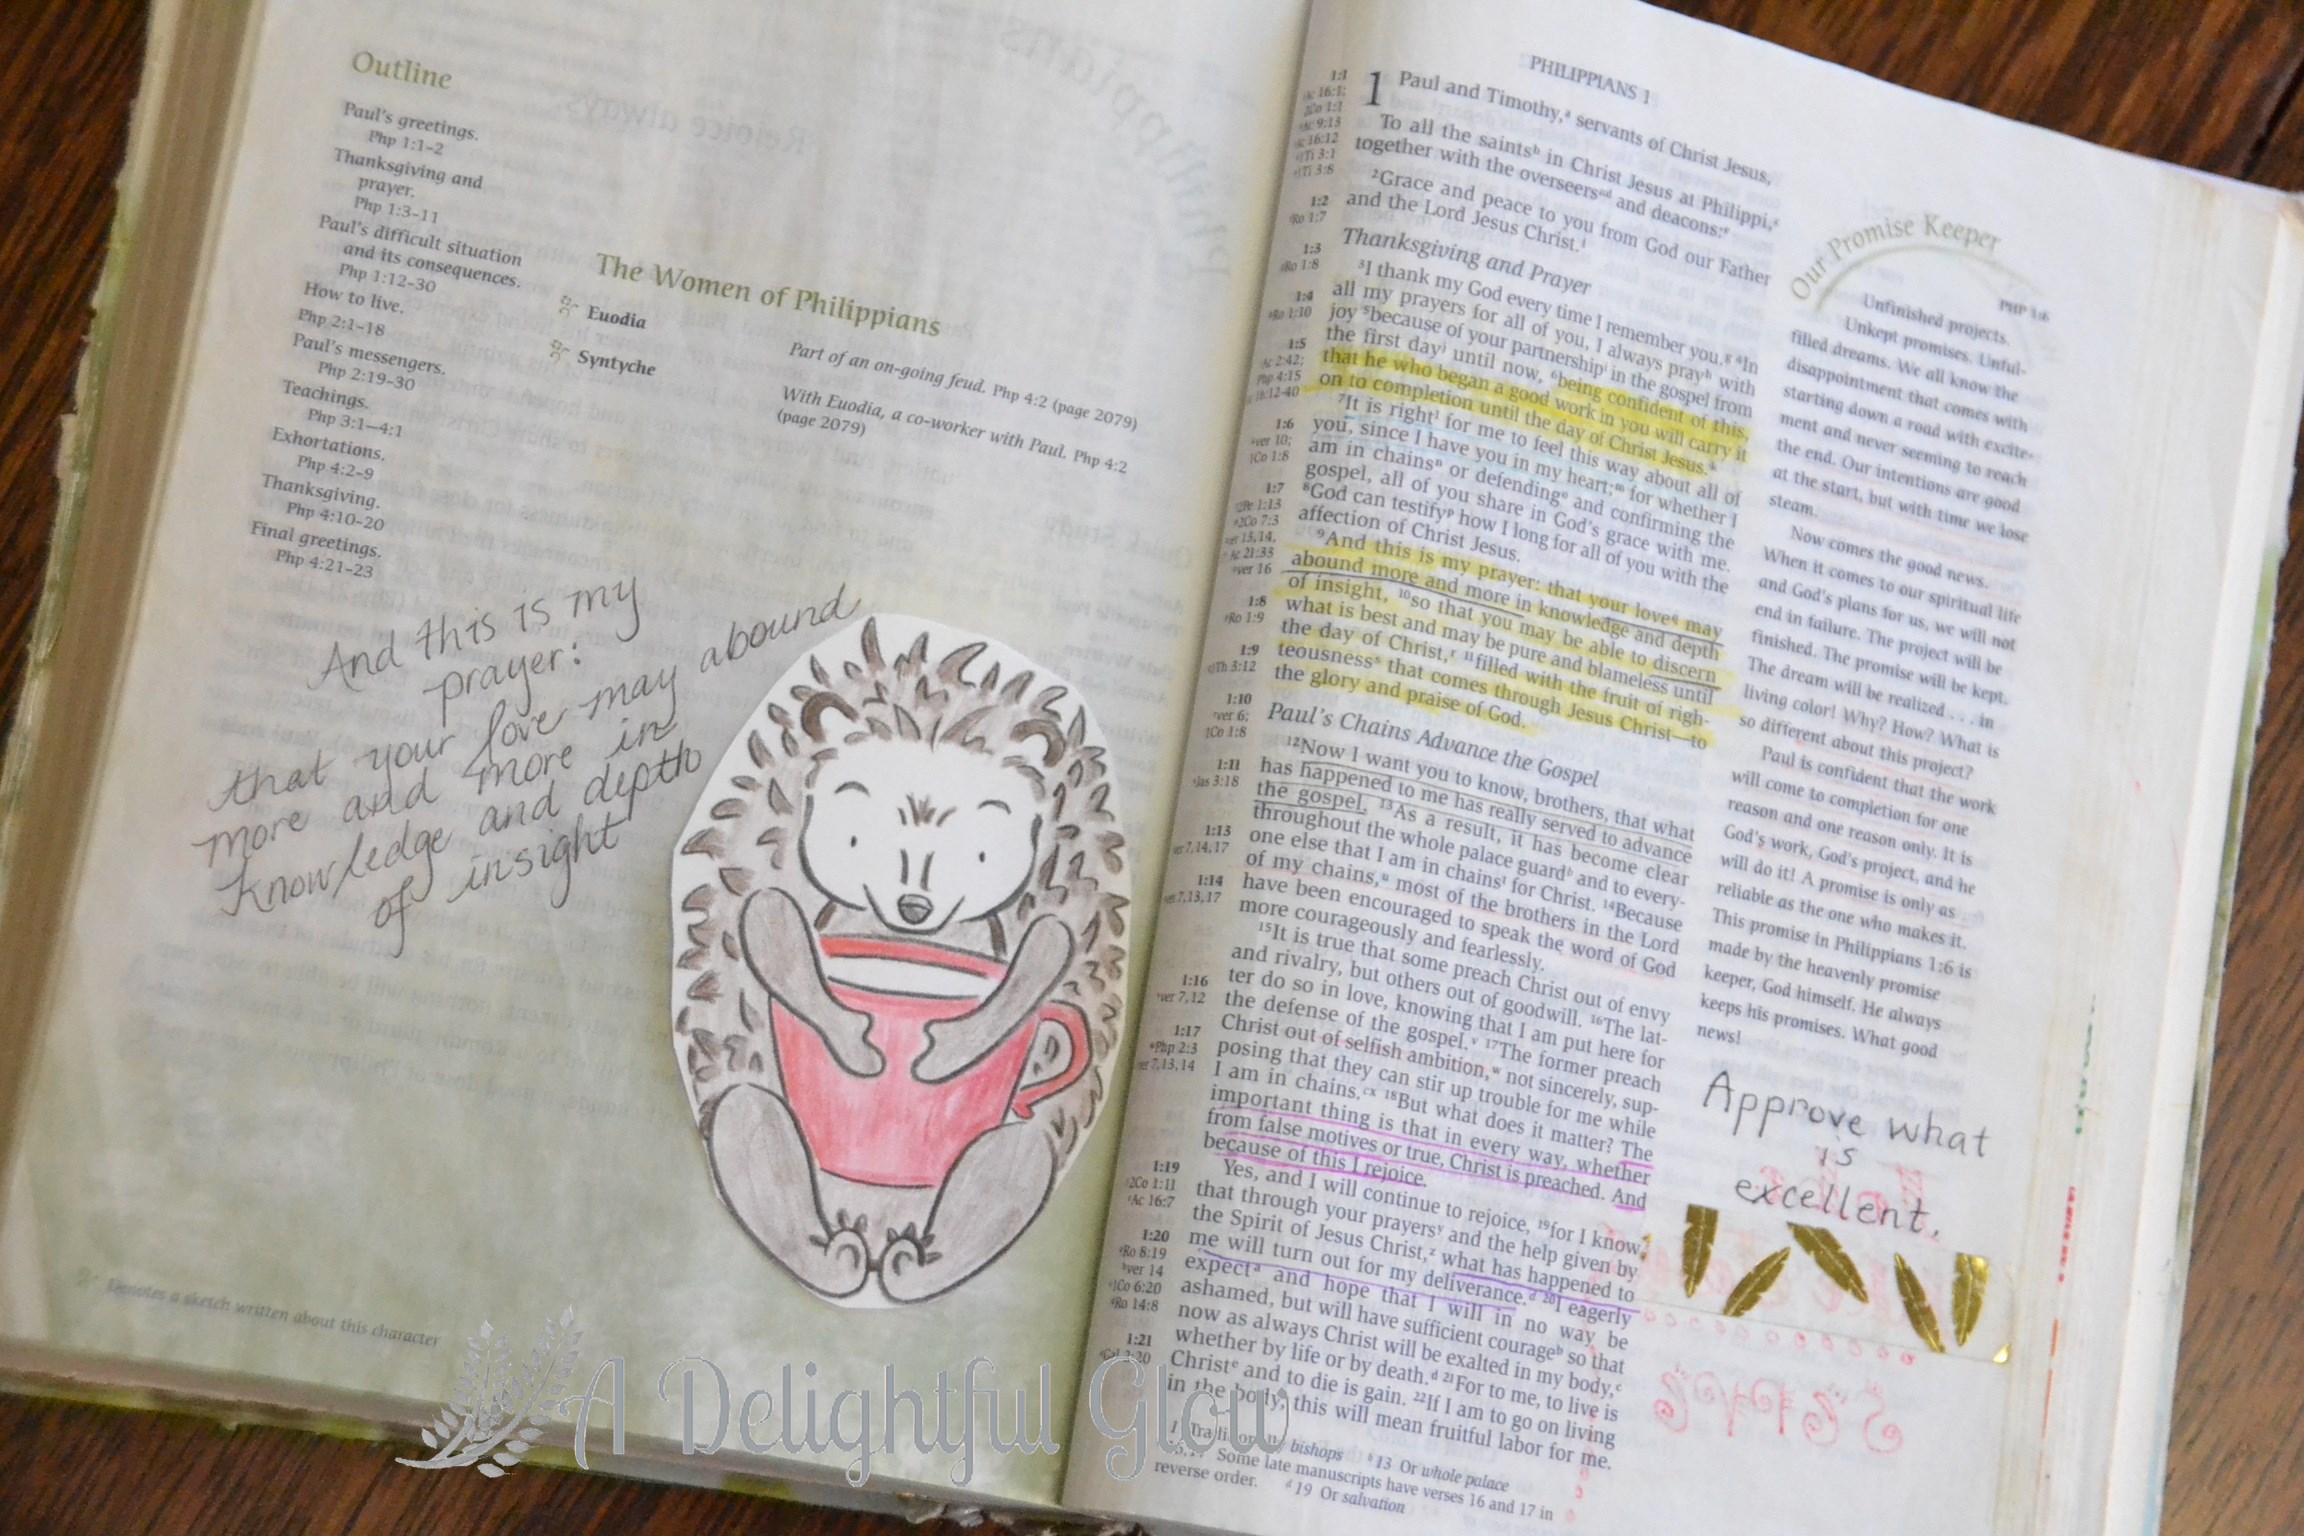 Outline
Paul's greetings.
Php 1:1–2
Thanksgiving and
prayer.
Php 1:3–11
Paul's difficult situation
and its consequences.
Php 1:12–30
How to live.
Php 2:1–18
Paul's messengers.
Php 2:19–30
Teachings.
Php 3:1—4:1
Exhortations.
Php 4:2–9
Thanksgiving.
Php 4:10–20
Final greetings.
Php 4:21–23
The Women of Philippians
Euodia
Part of an on-going feud. Php 4:2 (page 2079)
Syntyche
With Euodia, a co-worker with Paul. Php 4:2
(page 2079)
And this is my
prayer:
that your love may abound
more and more in
knowledge and depth
of insight
Denotes a sketch written about this character
PHILIPPIANS 1
1 Paul and Timothy,ᵃ servants of Christ Jesus,
To all the saintsᵇ in Christ Jesus at Philippi,ᶜ
together with the overseersᵃᵈ and deacons:ᵉ
²Grace and peace to you from God our Father
and the Lord Jesus Christ.ᶠ
Thanksgiving and Prayer
³I thank my God every time I remember you.ᵍ ⁴In
all my prayers for all of you, I always prayʰ with
joy ⁵because of your partnershipⁱ in the gospel from
the first dayʲ until now, ⁶being confident of this,
that he who began a good work in you will carry it
on to completion until the day of Christ Jesus.ᵏ
⁷It is rightˡ for me to feel this way about all of
you, since I have you in my heart;ᵐ for whether I
am in chainsⁿ or defendingᵒ and confirming the
gospel, all of you share in God's grace with me.
⁸God can testifyᵖ how I long for all of you with the
affection of Christ Jesus.
⁹And this is my prayer: that your love may
abound more and more in knowledge and depth
of insight, ¹⁰so that you may be able to discern
what is best and may be pure and blameless until
the day of Christ,ʳ ¹¹filled with the fruit of righ-
teousnessˢ that comes through Jesus Christ—to
the glory and praise of God.
Paul's Chains Advance the Gospel
¹²Now I want you to know, brothers, that what
has happened to me has really served to advance
the gospel. ¹³As a result, it has become clear
throughout the whole palace guardᵇ and to every-
one else that I am in chainsᵗ for Christ. ¹⁴Because
of my chains,ᵘ most of the brothers in the Lord
have been encouraged to speak the word of God
more courageously and fearlessly.
¹⁵It is true that some preach Christ out of envy
and rivalry, but others out of goodwill. ¹⁶The lat-
ter do so in love, knowing that I am put here for
the defense of the gospel.ᵛ ¹⁷The former preach
Christ out of selfish ambition,ʷ not sincerely, sup-
posing that they can stir up trouble for me while
I am in chains.ᶜˣ ¹⁸But what does it matter? The
important thing is that in every way, whether
from false motives or true, Christ is preached. And
because of this I rejoice.
Yes, and I will continue to rejoice, ¹⁹for I know
that through your prayersʸ and the help given by
the Spirit of Jesus Christ,ᶻ what has happened to
me will turn out for my deliverance.ᵈ ²⁰I eagerly
expectᵃ and hope that I will in no way be
ashamed, but will have sufficient courageᵇ so that
now as always Christ will be exalted in my body,ᶜ
whether by life or by death.ᵈ ²¹For to me, to live is
Christᵉ and to die is gain. ²²If I am to go on living
in the body, this will mean fruitful labor for me.
bishops ᵇ13 Or whole palace
Some late manuscripts have verses 16 and 17 in
reverse order. ᵈ19 Or salvation
Our Promise Keeper
PHP 1:6
Unfinished projects.
Unkept promises. Unful-
filled dreams. We all know the
disappointment that comes with
starting down a road with excite-
ment and never seeming to reach
the end. Our intentions are good
at the start, but with time we lose
steam.
Now comes the good news.
When it comes to our spiritual life
and God's plans for us, we will not
end in failure. The project will be
finished. The promise will be kept.
The dream will be realized . . . in
living color! Why? How? What is
so different about this project?
Paul is confident that the work
will come to completion for one
reason and one reason only. It is
God's work, God's project, and he
will do it! A promise is only as
reliable as the one who makes it.
This promise in Philippians 1:6 is
made by the heavenly promise
keeper, God himself. He always
keeps his promises. What good
news!
Approve what
is
excellent.
A Delightful Glow